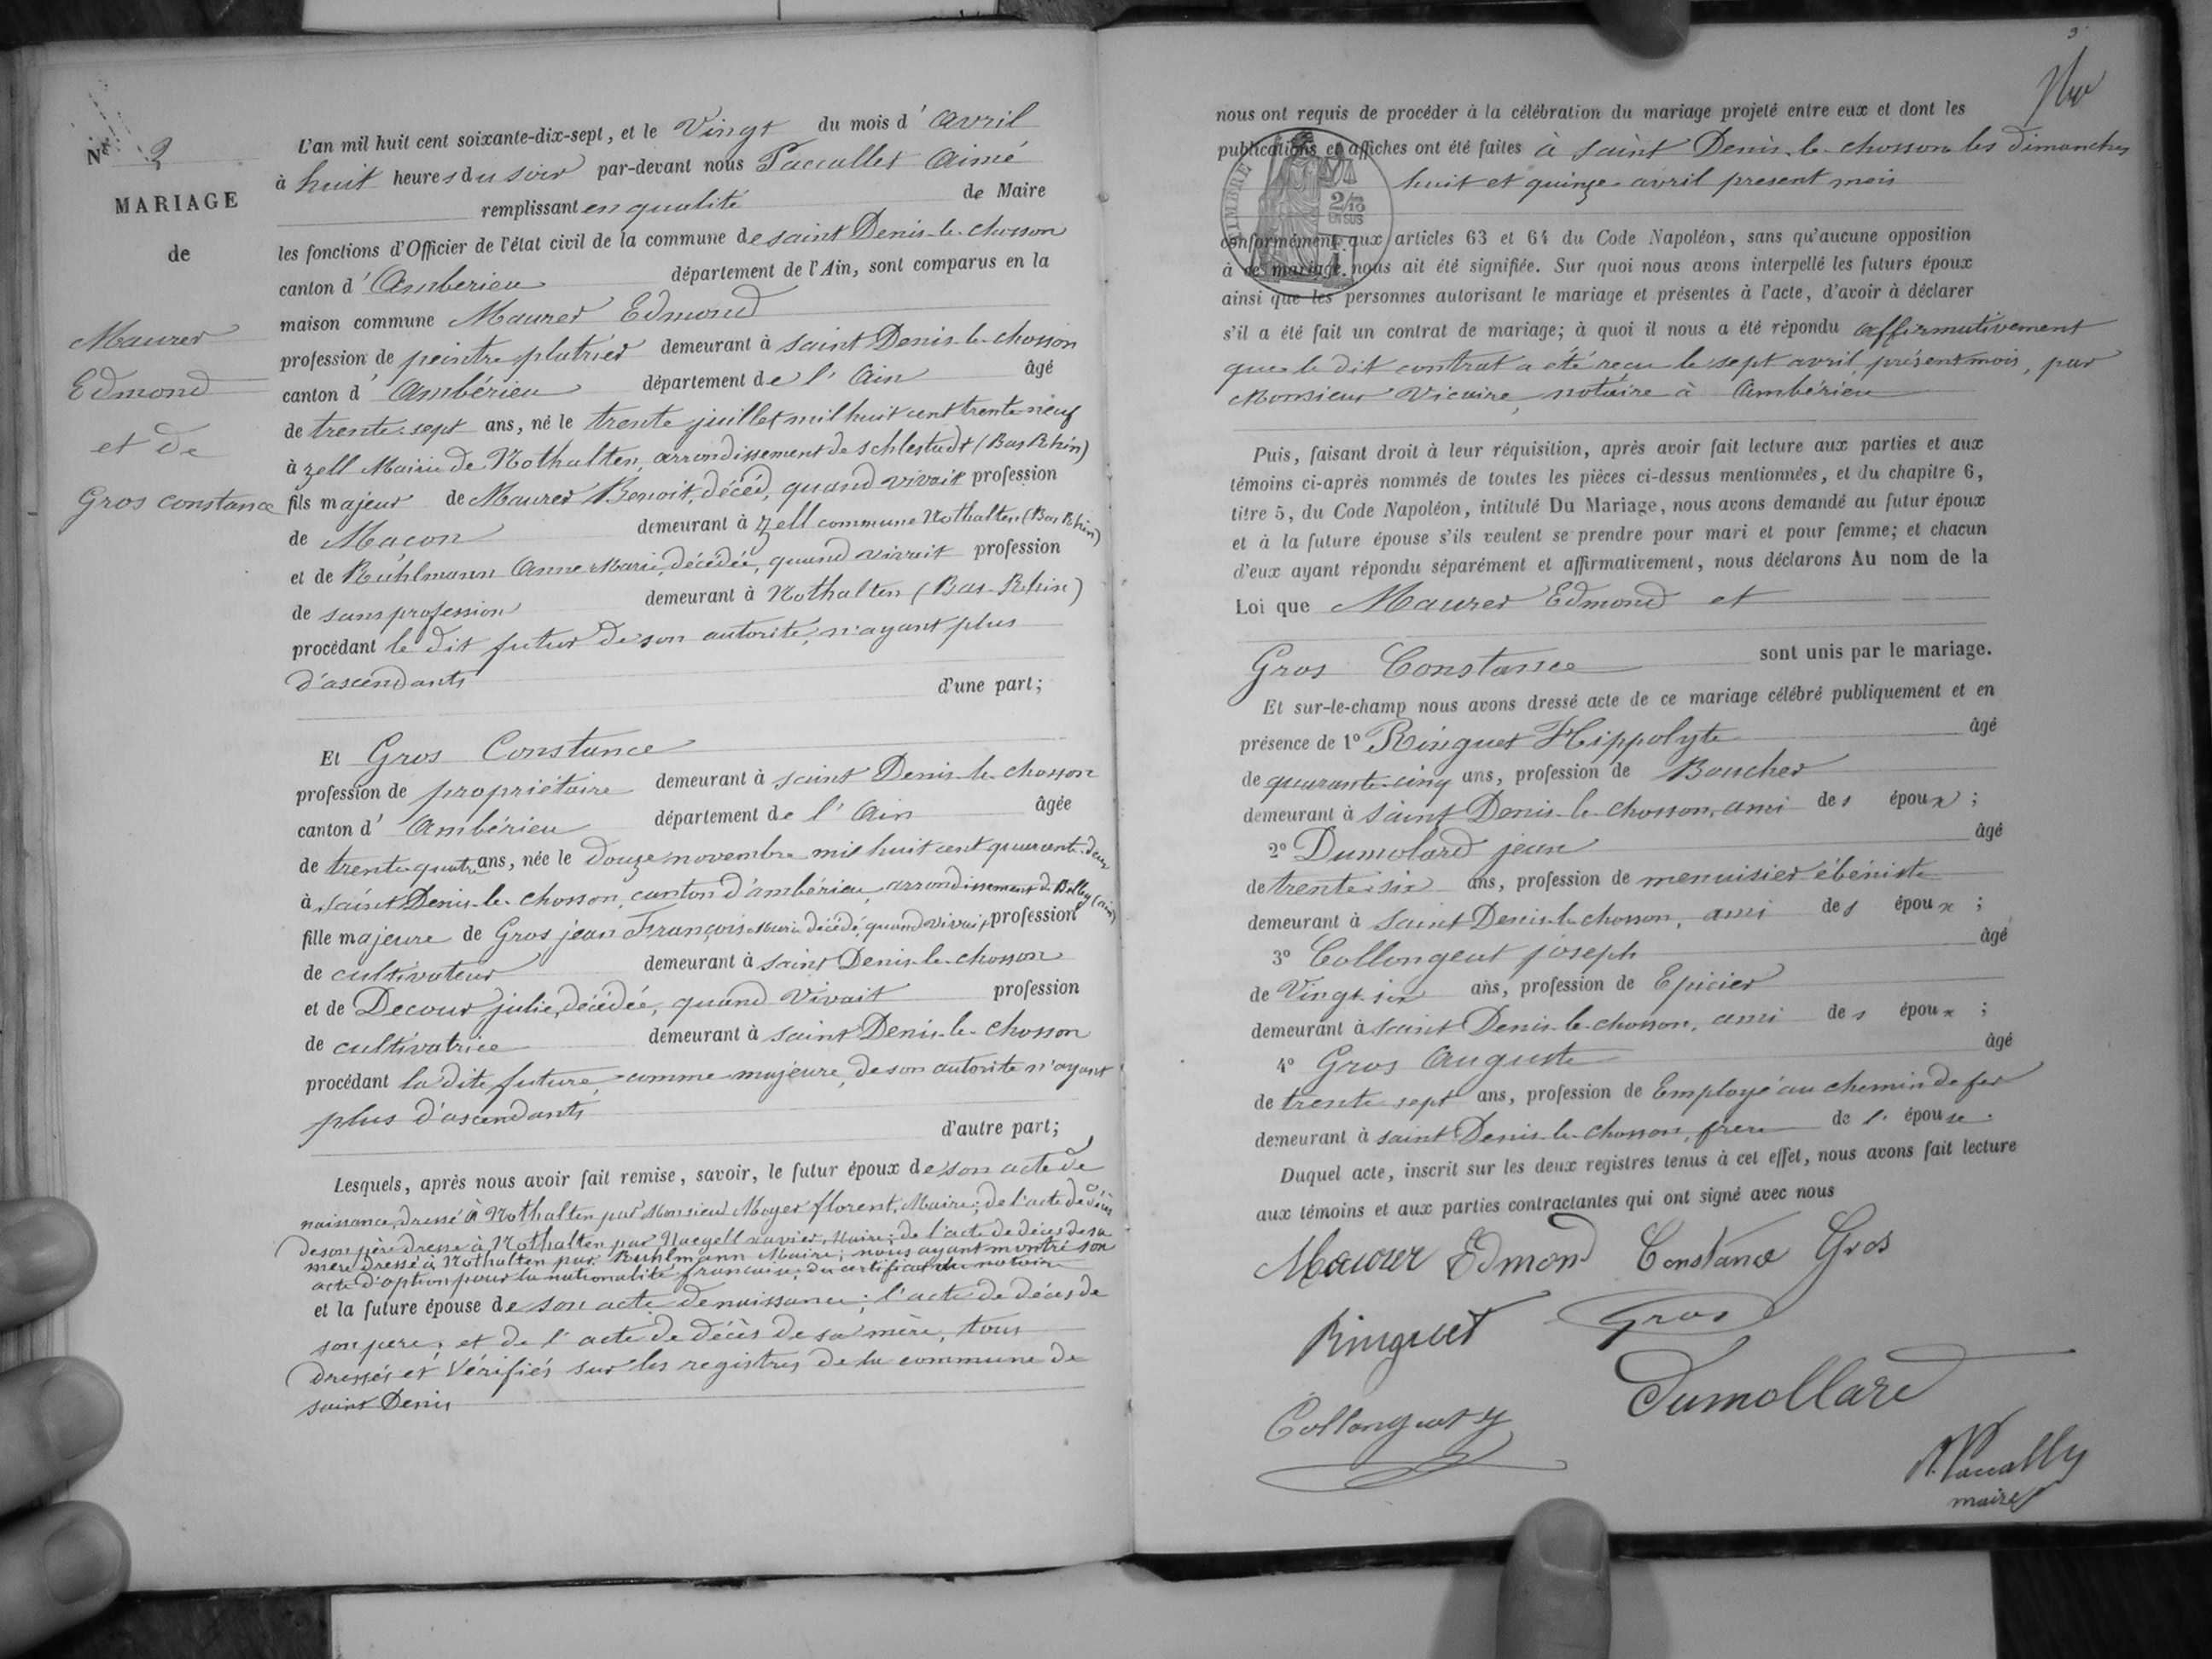 N° 2
MARIAGE
de
Maurer
Edmond
et de
Gros constance
L'an mil huit cent soixante-dix-sept, et le Vingt du mois d' Avril
à huit heures du soir par-devant nous Paccallet Aimé
remplissant en qualité de Maire
les fonctions d'Officier de l'état civil de la commune de saint Denis-le-chosson
canton d' Ambérieu département de l'Ain, sont comparus en la
maison commune Maurer Edmond
profession de peintre-plâtrier demeurant à saint Denis-le-chosson
canton d' Ambérieu département de l' Ain âgé
de trente-sept ans, né le trente juillet mil huit cent trente-neuf
à zell Mairie de Nothalten, arrondissement de schlestadt (Bas Rhin)
fils majeur de Maurer Benoit, décéd, quand vivait profession
de Maçon demeurant à zell commune Nothalten (Bas Rhin)
et de Ruhlmann Anne Marie, décédée, quand vivait profession
de sans profession demeurant à Nothalten (Bas-Rhin)
procédant le dit futur de son autorité, n'ayant plus
d'ascendants d'une part;
Et Gros Constance
profession de propriétaire demeurant à saint Denis-le-chosson
canton d' Ambérieu département de l' Ain âgée
de trente quatre ans, née le douze novembre mil huit cent quarante-deux
à saint Denis-le-chosson, canton d'ambérieu, arrondissement de Belley (ain)
fille majeure de Gros jean François Marie décédé, quand vivait profession
de cultivateur demeurant à saint Denis-le-chosson
et de Decour julie, décédée, quand Vivait profession
de cultivatrice demeurant à saint Denis-le-chosson
procédant la dite future comme majeure, de son autorité n'ayant
plus d'ascendants
d'autre part;
Lesquels, après nous avoir fait remise, savoir, le futur époux de son acte de
naissance, dressé à Nothalten par Monsieur Moyer florent, Maire; de l'acte de décès
de son père dressé à Nothalten par Naegell xavier, Maire; de l'acte de décès de sa
mère dressé à Nothalten par Ruhlmann Maire; nous ayant montré son
acte d'option pour la nationalité française; du certificat du notaire
et la future épouse de son acte de naissance; l'acte de décès de
son père; et de l'acte de décès de sa mère, tous
dressés et Vérifiés sur les registres de la commune de
saint Denis
3
nous ont requis de procéder à la célébration du mariage projeté entre eux et dont les
publications et affiches ont été faites à saint Denis-le-chosson les dimanches
huit et quinze avril present mois
TIMBRE
2/10
EN SUS
conformément aux articles 63 et 64 du Code Napoléon, sans qu'aucune opposition
à ce mariage nous ait été signifiée. Sur quoi nous avons interpellé les futurs époux
ainsi que les personnes autorisant le mariage et présentes à l'acte, d'avoir à déclarer
s'il a été fait un contrat de mariage; à quoi il nous a été répondu affirmativement
que le dit contrat a été reçu le sept avril, présent mois, par
Monsieur Vicaire, notaire à Ambérieu
Puis, faisant droit à leur réquisition, après avoir fait lecture aux parties et aux
témoins ci-après nommés de toutes les pièces ci-dessus mentionnées, et du chapitre 6,
titre 5, du Code Napoléon, intitulé Du Mariage, nous avons demandé au futur époux
et à la future épouse s'ils veulent se prendre pour mari et pour femme; et chacun
d'eux ayant répondu séparément et affirmativement, nous déclarons Au nom de la
Loi que Maurer Edmond et
Gros Constance sont unis par le mariage.
Et sur-le-champ nous avons dressé acte de ce mariage célébré publiquement et en
présence de 1° Ringuet Hippolyte âgé
de quarante-cinq ans, profession de Boucher
demeurant à saint Denis-le-chosson, ami des époux;
2° Dumolard jean âgé
de trente-six ans, profession de menuisier ébéniste
demeurant à saint Denis-le-chosson, ami des époux;
3° Collongeat joseph âgé
de Vingt-six ans, profession de Epicier
demeurant à saint Denis-le-chosson, ami des époux;
4° Gros Auguste âgé
de trente sept ans, profession de Employé au chemin de fer
demeurant à saint Denis-le-chosson, frère de l' épouse.
Duquel acte, inscrit sur les deux registres tenus à cet effet, nous avons fait lecture
aux témoins et aux parties contractantes qui ont signé avec nous
Maurer Edmond Constance Gros
Ringuet Gros
Dumollard
Collongeat J
maire